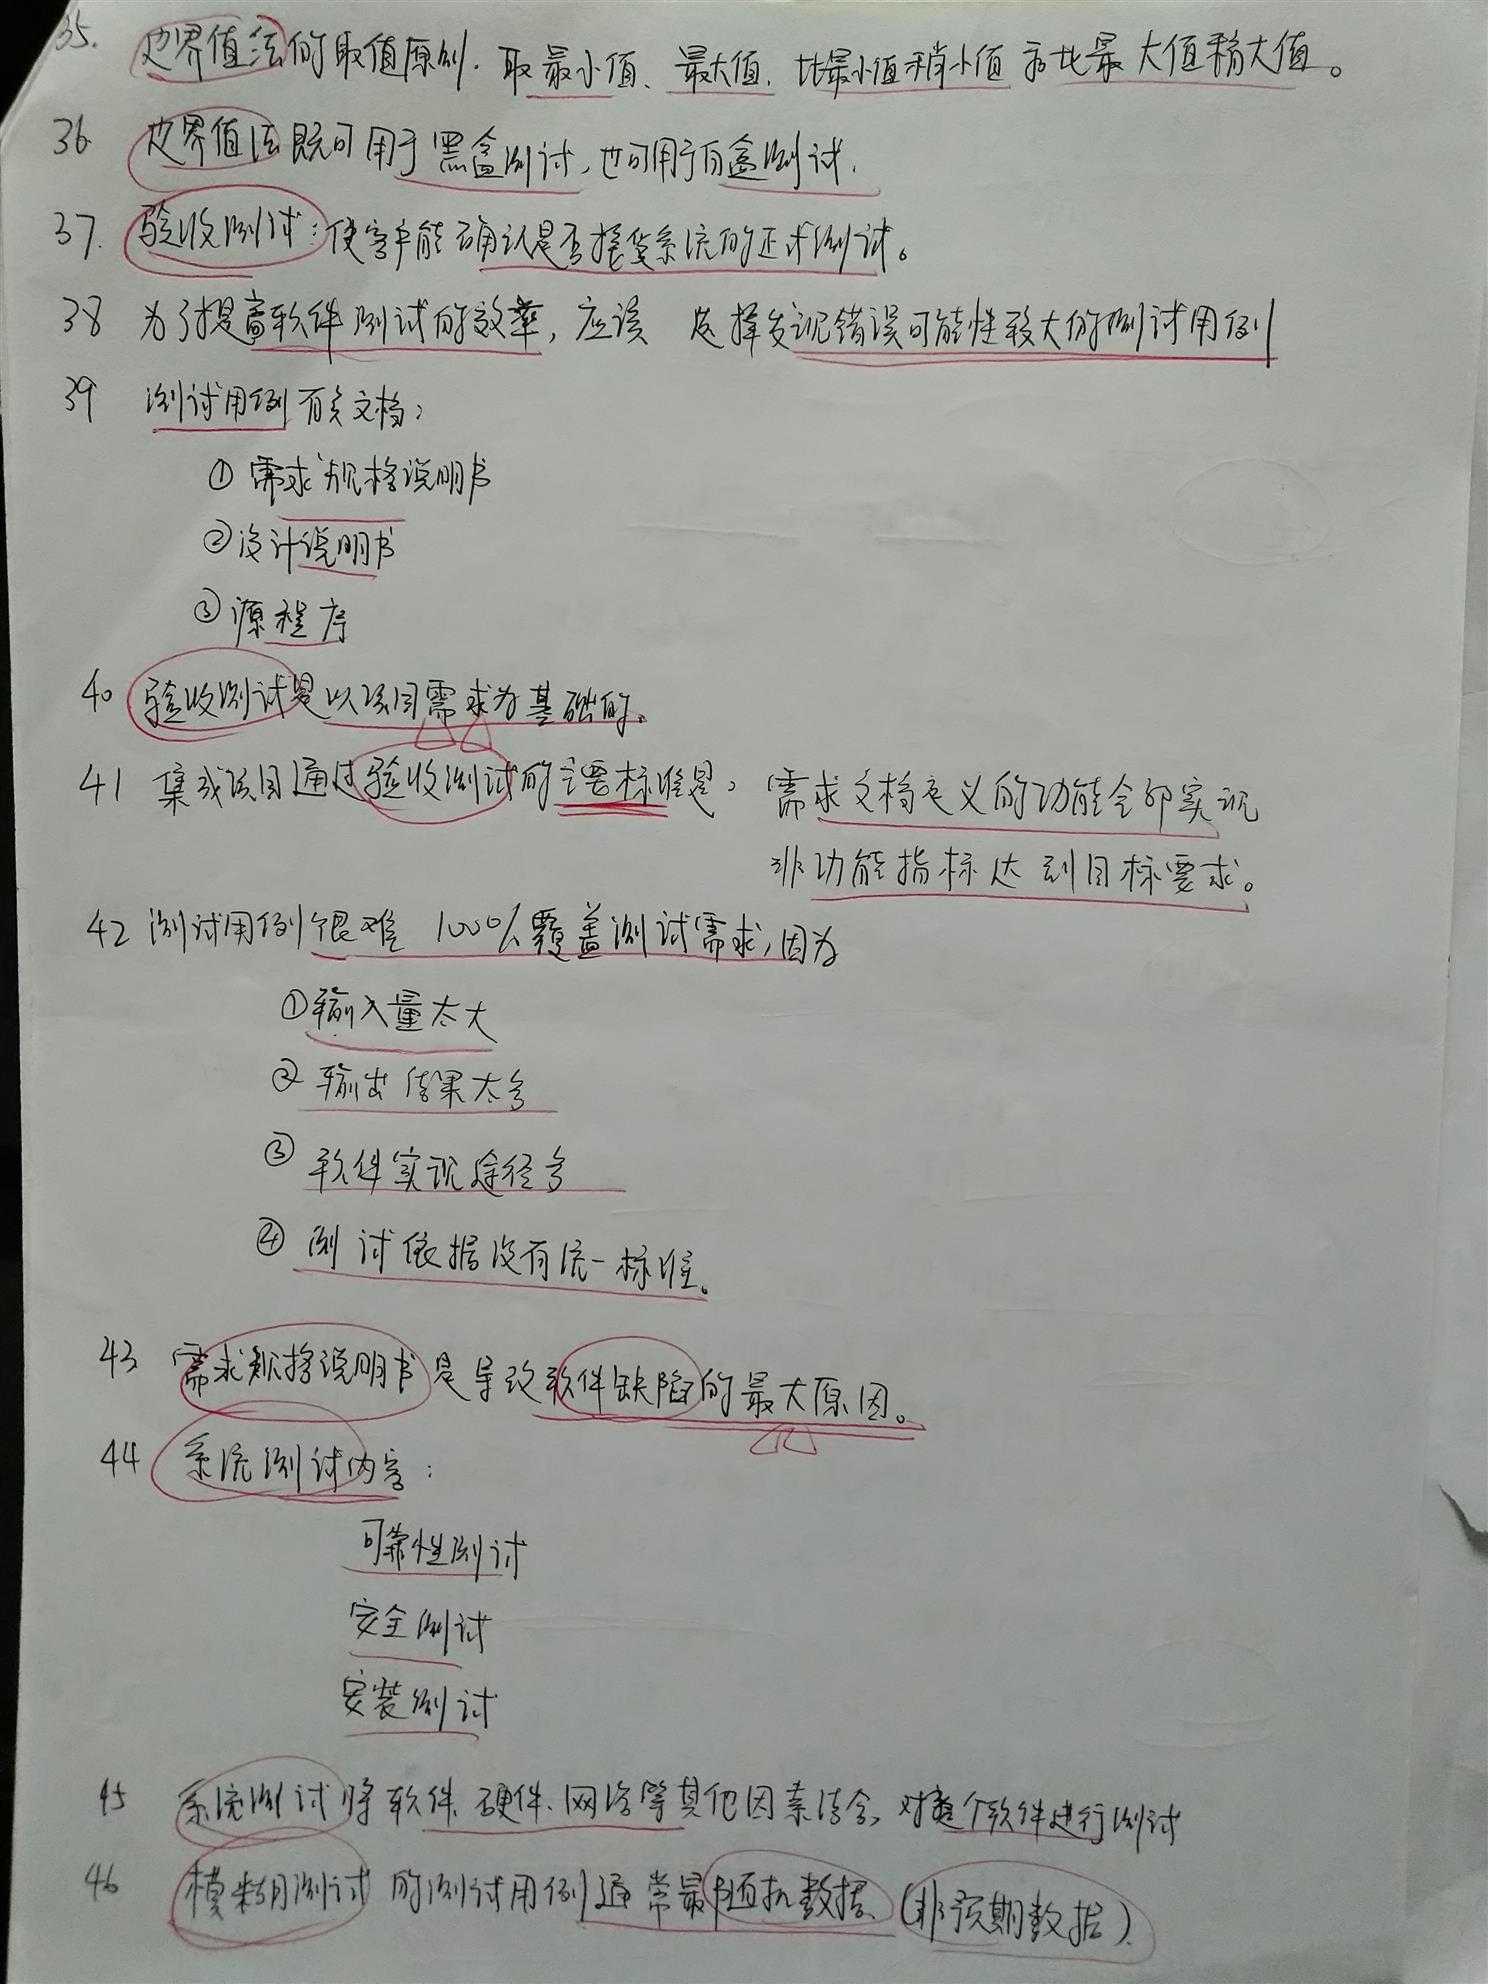 35. 边界值法的取值原则. 取最小值、最大值. 比最小值稍小值和比最大值稍大值。
36 边界值法既可用于黑盒测试, 也可用于白盒测试.
37. 验收测试: 使客户能确认是否接受系统的正式测试。
38 为了提高软件测试的效率, 应该 选择发现错误可能性较大的测试用例
39 测试用例有关文档:
① 需求规格说明书
② 设计说明书
③ 源程序
40 验收测试是以项目需求为基础的。
41 集成项目通过验收测试的主要标准是, 需求文档定义的功能全部实现
非功能指标达到目标要求。
42 测试用例很难 100%覆盖测试需求, 因为
① 输入量太大
② 输出结果太多
③ 软件实现途径多
④ 测试依据没有统一标准。
43 需求规格说明书是导致软件缺陷的最大原因。
44 系统测试内容:
可靠性测试
安全测试
安装测试
45 系统测试将软件、硬件、网络等其他因素结合, 对整个软件进行测试
46 模糊测试的测试用例通常是随机数据 (非预期数据).